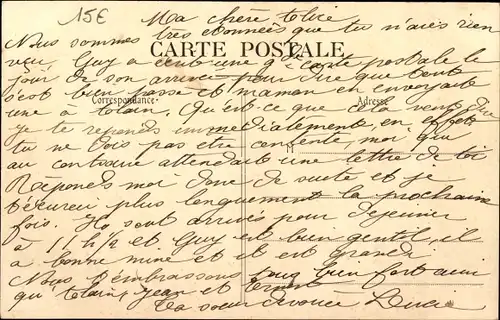 15€
Ma chère
Nous sommes très étonnées que tu n'aies rien
CARTE POSTALE
reçu. Guy a écrit une carte postale le
jour de son arrivée pour dire que tout
s'est bien passé et maman en envoyait
Correspondance
Adresse
une à Qu'est-ce que cela veut dire
je te réponds immédiatement, en effet
tu ne dois pas être contente, moi qui
au contraire attendait une lettre de toi
Réponds moi donc de suite et je
t'écrirai plus longuement la prochaine
fois. Ils sont arrivés pour déjeuner
à 11 h ½ et Guy est bien gentil, il
a bonne mine et il est grandi
Nous t'embrassons tous bien fort ainsi
qu' Jean et
Ta sœur dévouée Lucie